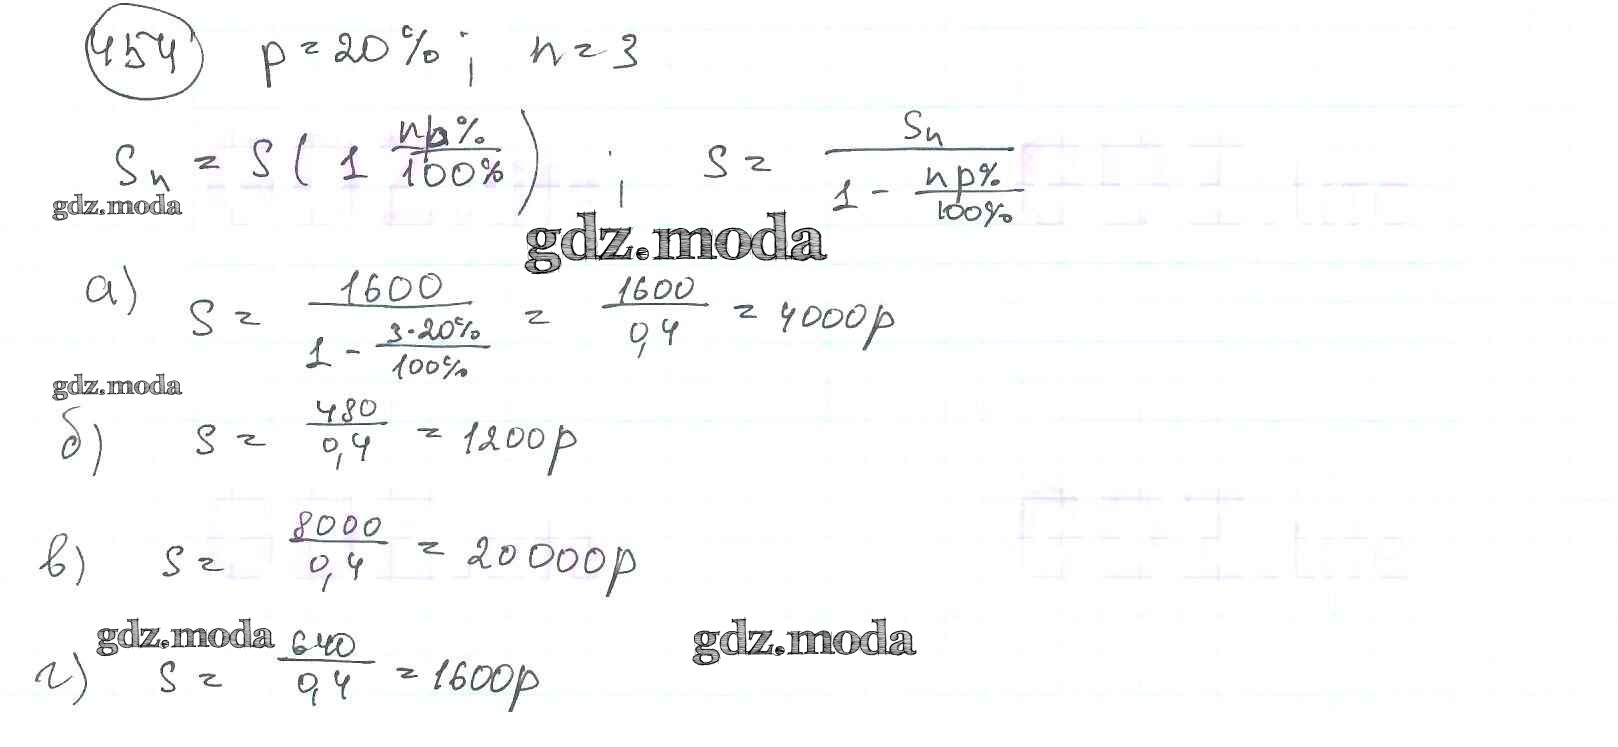 454 p = 20% ; n = 3
Sn = S ( 1 np% / 100% ) ; S = Sn / (1 - np% / 100%)
gdz.moda
gdz.moda
а) S = 1600 / (1 - 3·20% / 100%) = 1600 / 0,4 = 4000р
gdz.moda
б) S = 480 / 0,4 = 1200р
в) S = 8000 / 0,4 = 20000р
gdz.moda
gdz.moda
г) S = 640 / 0,4 = 1600р